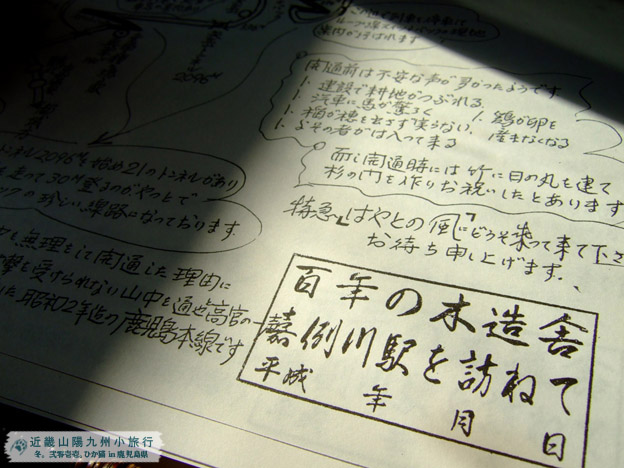 2096M
開通前は不安な声が多かったようです
1. 建設で耕地がつぶれる
1. 汽車に馬が驚く
1. 鶏が卵を産まなくなる
1. 稲が穂を出さず実らない、
1. よその者がは入って来る
而し開通時には竹に日の丸を建て
杉の門を作りお祝いしたとあります
特急「はやとの風」にどうぞ乗って来て下さ
お待ち申し上げます、、
トンネル2096Mを始め21のトンネルがあり
って30‰登るのがやっとで
ックの珍しい線路になっております
無理をして開通した理由に
撃を受けられない山中を通せ高官の一
いた昭和2年迄の鹿児島本線です
百年の木造舎
嘉例川駅を訪ねて
平成 年 月 日
近畿山陽九州小旅行
冬。弐零壱壱。ひか猫 in 鹿児島県